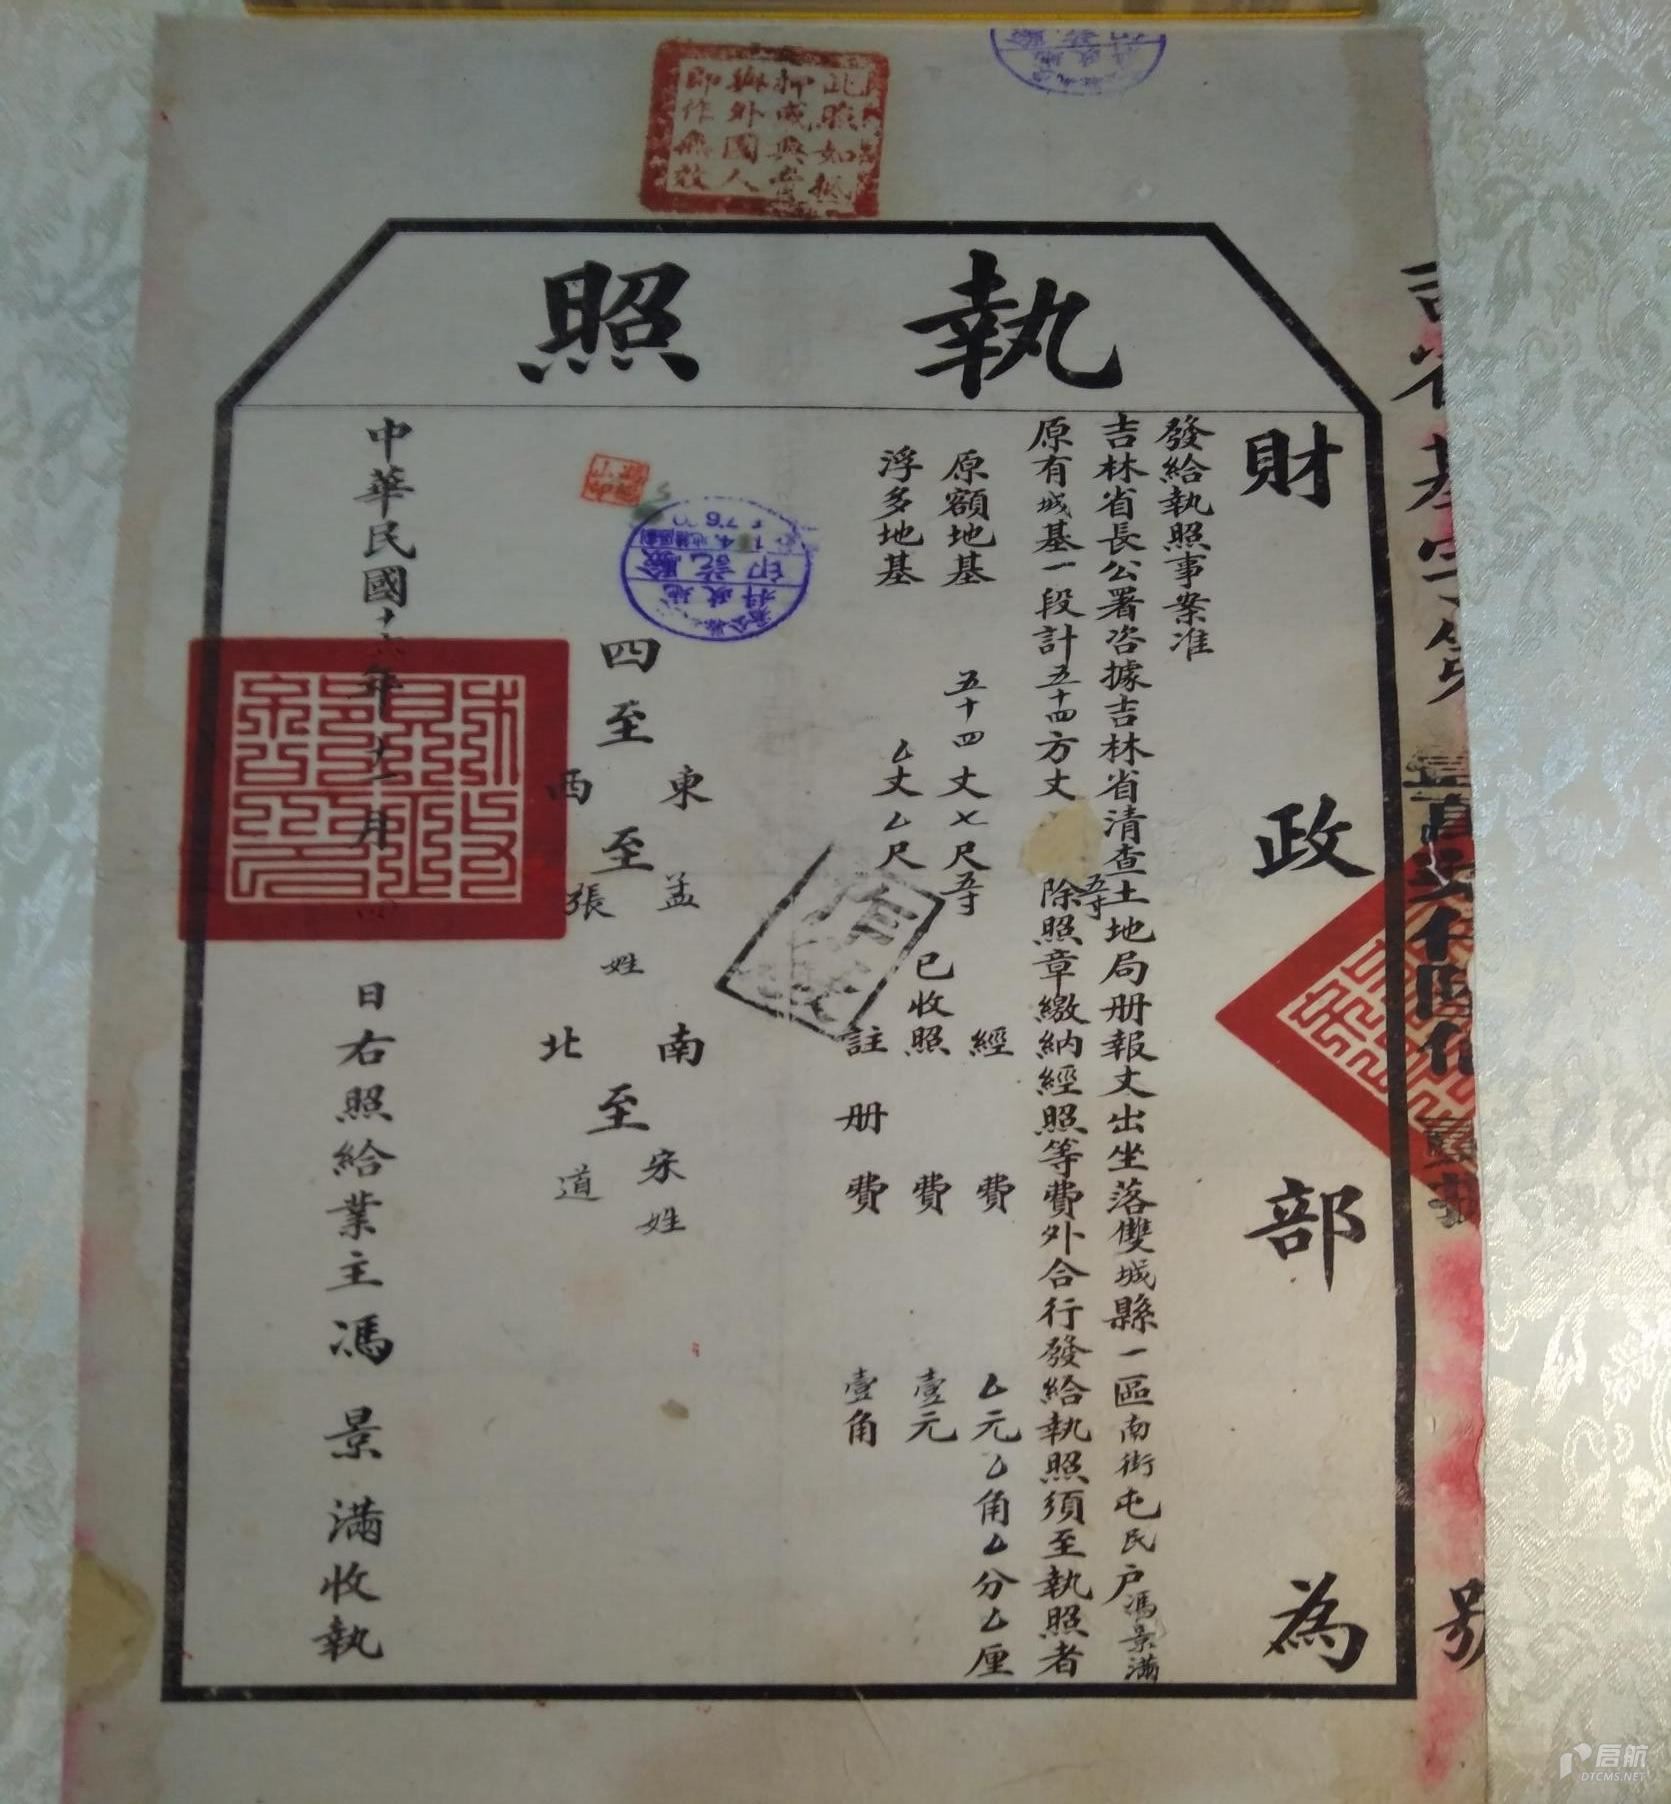 此照如抵
押或典賣
與外國人
即作無效
執照
財政部為
發給執照事案准
吉林省長公署咨據吉林省清查土地局册報丈出坐落雙城縣一區南街屯民戶馮景滿
原有城基一段計五十四方丈
五寸
除照章繳納經照等費外合行發給執照須至執照者
原額地基 五十四丈七尺五寸
浮多地基 厶丈厶尺
已收
經費 厶元厶角厶分厶厘
照費 壹元
註册費 壹角
四至
東至孟姓
西至張姓
南至宋姓
北至道
驗訖印
中華民國十六年十一月 日右照給業主馮景滿收執
號
启航
DTCMS.NET